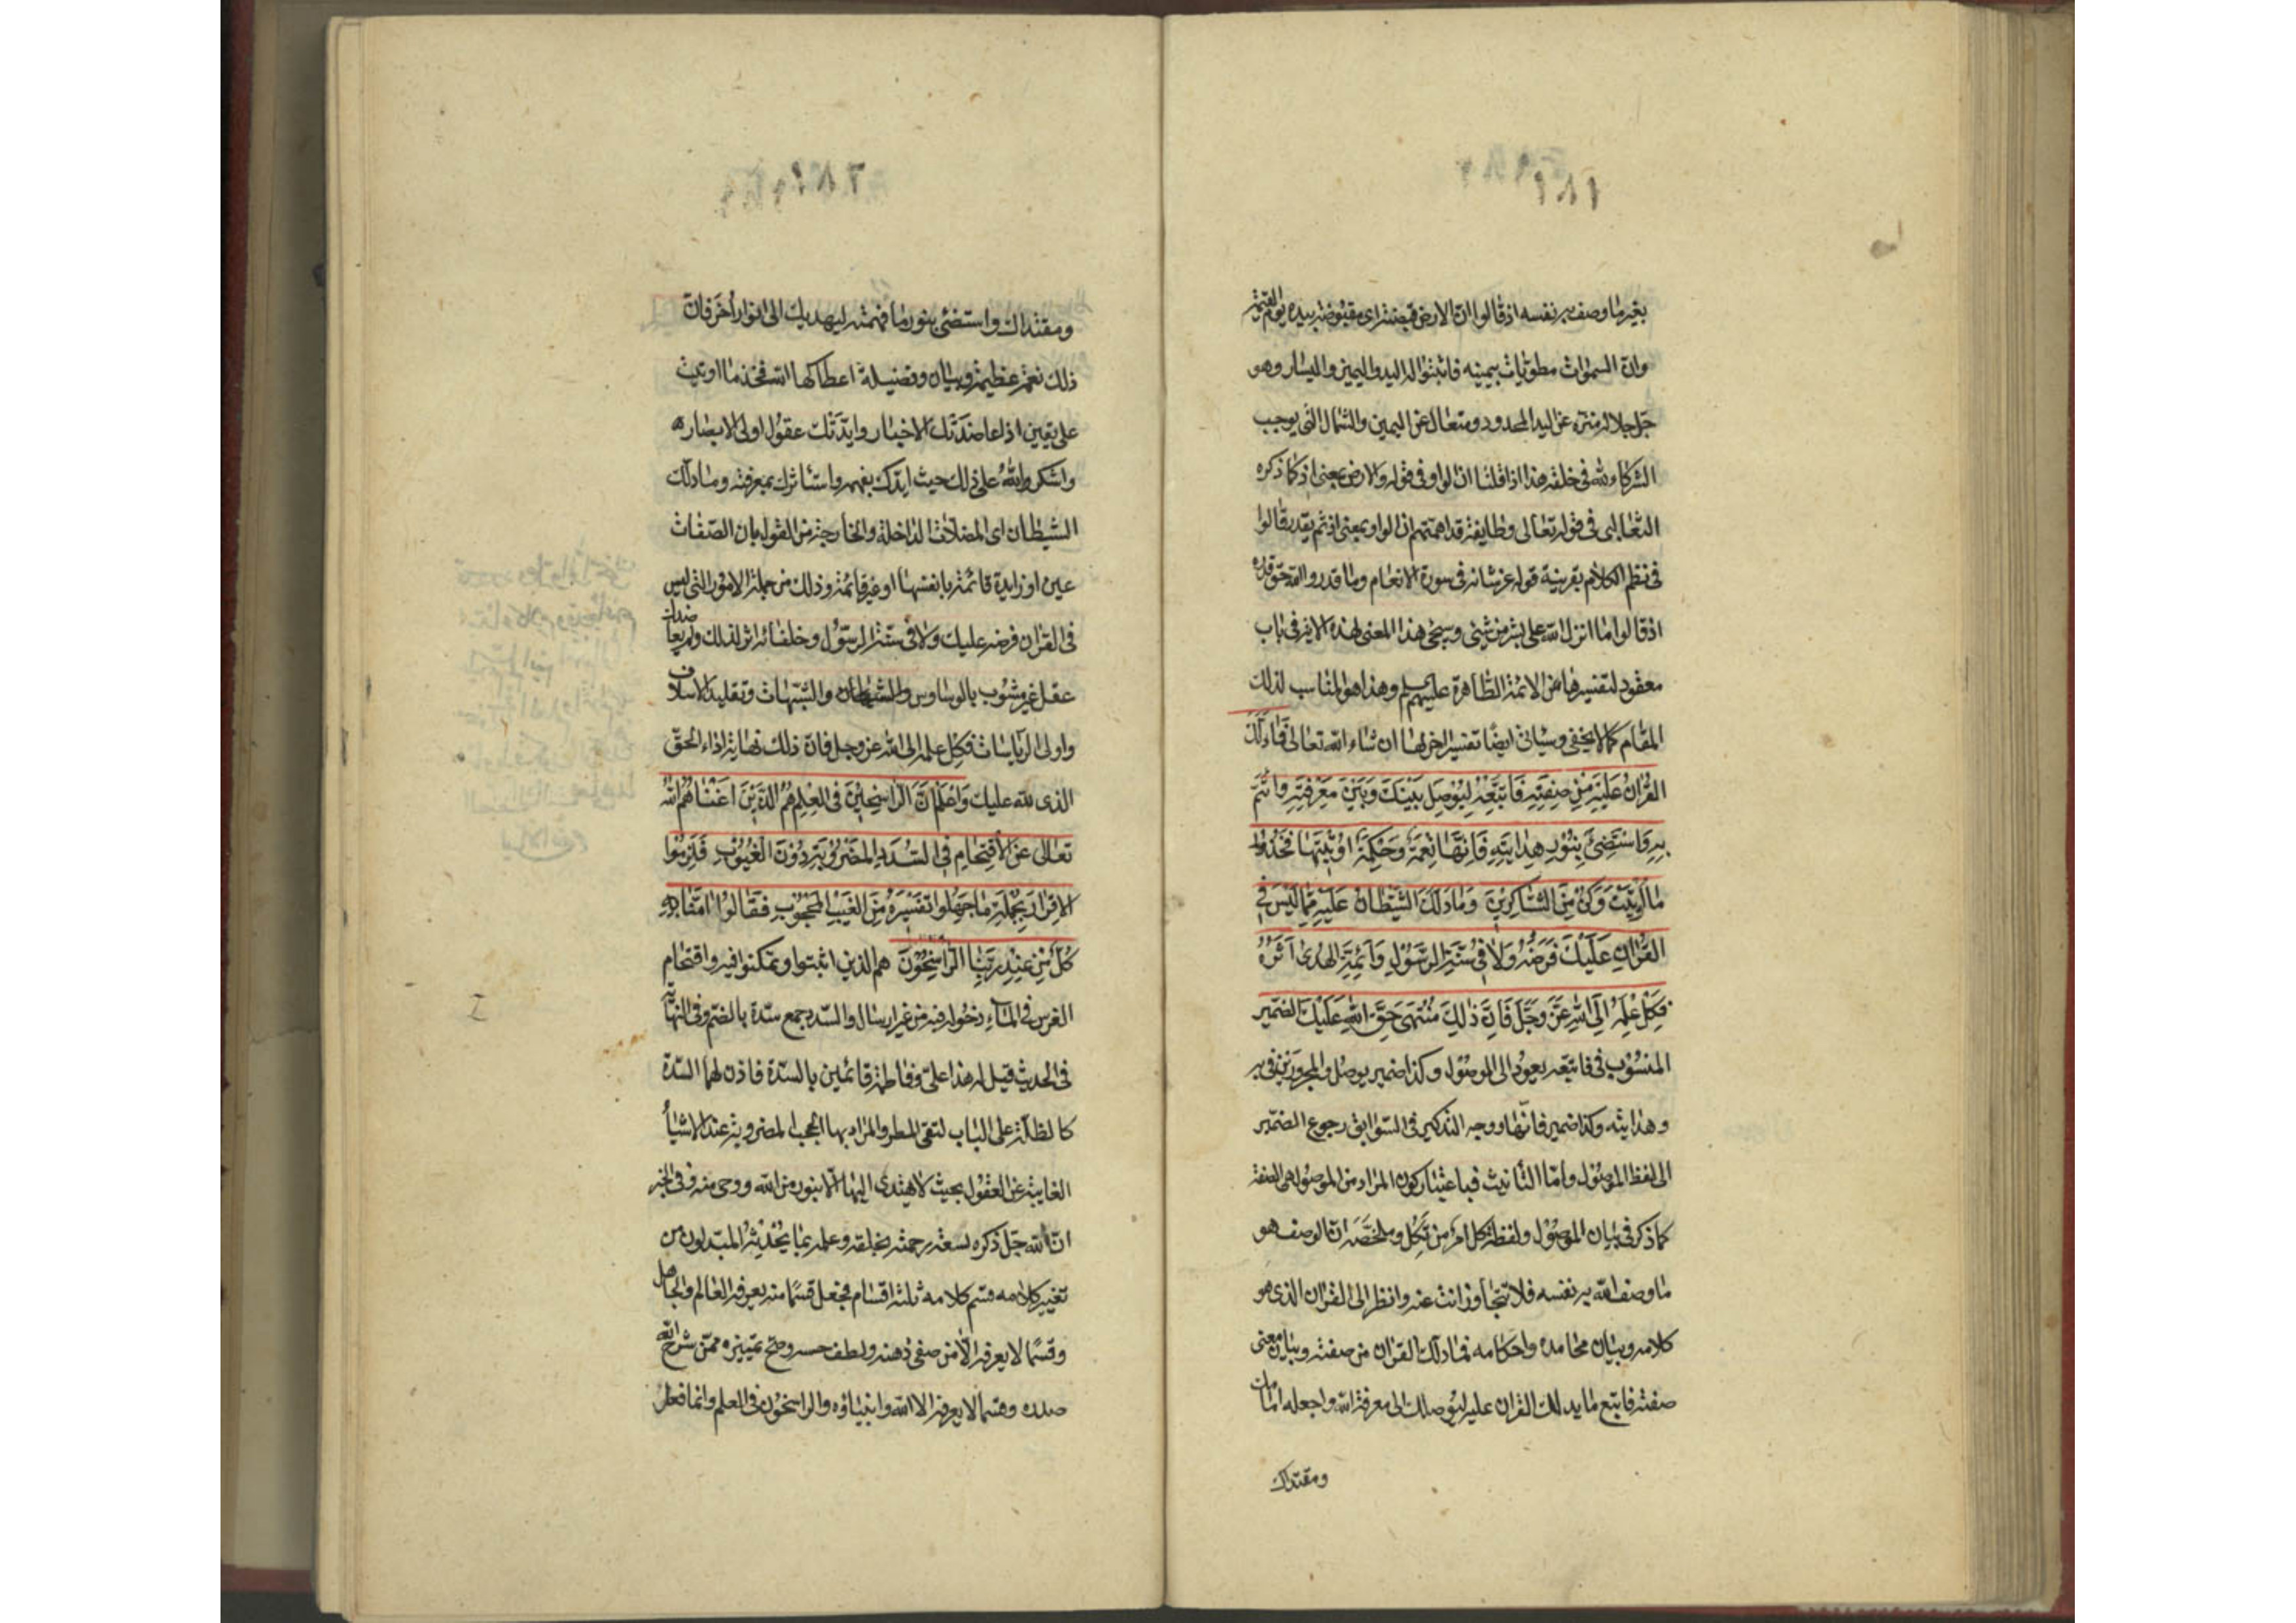 بغير ما وصف به نفسه اذ قالوا ان الارض قبضته اى مقبوضة بيده يوم القيمة
وان السموات مطويات بيمينه فاثبتوا له اليد واليمين واليسار وهو
جل جلاله منزه عن اليد المحدود ومتعال عن اليمين والشمال التى يوجب
الشركاء لله فى خلقه هذا اذا قلنا ان الواو فى قوله والارض بمعنى اذ كما ذكره
الثعالبى فى قوله تعالى وطايفة قد اهمتهم ان الواو بمعنى اذ ثم يقدر قالوا
فى نظم الكلام بقرينة قوله عز شانه فى سورة الانعام وما قدروا الله حق قدره
اذ قالوا ما انزل الله على بشر من شئ وسيجئ هذا المعنى لهذه الاية فى باب
معقود لتفسيرها من الائمة الطاهرة عليهم وهذا هو المناسب لذلك
المقام كما لا يخفى وسياتى ايضا تفسير اخر لها ان شاء الله تعالى فَما دَلَّكَ
القُرْانُ عَلَيْهِ مِنْ صِفَتِهِ فَاتَّبِعْهُ لِيُوصِلَ بَيْنَكَ وَبَيْنَ مَعْرِفَتِهِ وَأْتَمَّ
بِهِ وَاسْتَضِئْ بِنُورِ هِدايَتِهِ فَاِنَّها نِعْمَةٌ وَحِكْمَةٌ اُوتِيتَها فَخُذْ
ما اُوتِيتَ وَكُنْ مِنَ الشّاكِرِينَ وَما دَلَّكَ الشَّيْطانُ عَلَيْهِ مِمّا لَيْسَ فِى
القُرْانِ عَلَيْكَ فَرْضُهُ وَلا فِى سُنَّةِ الرَّسُولِ وَاَئِمَّةِ الهُدى اَثَرُهُ
فَكِلْ عِلْمَهُ اِلَى اللهِ عَزَّ وَجَلَّ فَاِنَّ ذلِكَ مُنْتَهى حَقِّ اللهِ عَلَيْكَ الضمير
المنسوب فى فاتبعه يعود الى الموصول وكذا ضمير يوصل والمجرورين فى به
وهدايته وكذا ضمير فانها ووجه التذكير فى السوابق رجوع الضمير
الى لفظ الموصول واما التأنيث فباعتبار كون المراد من الموصول هى الصفة
كما ذكر فى بيان الموصول ولفظة كل امر من تَكِل وملخصه ان الوصف هو
ما وصف الله به نفسه فلا تتجاوز انت عنه وانظر الى القران الذى هو
كلامه وبيان محامده واحكامه فما دلك القران من صفته وبيان معنى
صفته فاتبع ما يدلك القران عليه ليوصلك الى معرفة الله واجعله امامك
ومقتداك
ومقتداك واستضئ بنور ما فهمته ليهديك الى انوار اُخَر فان
ذلك نعمة عظيمة وبيان وفضيلة اعطاكها الله فخذ ما اوتيت
على يقين اذا عاضدَتْك الاخبار وايّدَتْك عقول اولى الابصار
واشكر والله على ذلك حيث ايدك بفهمه واستأثرك بمعرفته وما دلك
الشيطان اى المضلات الداخلة والخارجة من القول بان الصفات
عين او زايدة قائمة بانفسها او غير قائمة وذلك من جملة الامور التى ليس
فى القران فرضه عليك ولا فى سنة الرسول وخلفائه اثر لذلك ولم يعاضدك
عقل غير مشوب بالوساوس والشيطان والشبهات وتقليد الاسلاف
واولى الرياسات فكِل علمه الى الله عز وجل فان ذلك نهاية اداء الحق
الذى لله عليك وَاعْلَمْ اَنَّ الرّاسِخينَ فِى العِلْمِ هُمُ الَّذينَ اَغْناهُمُ اللهُ
تَعالى عَنِ الاِقْتِحامِ فِى السُّدَدِ المَضْرُوبَةِ دُونَ الغُيُوبِ فَلَزِمُوا
الاِقْرارَ بِجُمْلَةِ ما جَهِلُوا تَفْسيرَهُ مِنَ الغَيْبِ المَحْجُوبِ فَقالُوا امَنّا بِهِ
كُلٌّ مِنْ عِنْدِ رَبِّنا الرّاسِخُونَ هم الذين اثبتوا وتمكنوا فيه واقتحام
الفرس فى الماء دخوله فيه من غير ارسال والسدد جمع سدة بالضم وفى النهاية
فى الحديث قيل له هذا على وفاطمة قائمين بالسدة فاذن لهما السدة
كالظلة على الباب لتقى المطر والمراد بها الحجب المضروبة عند الاشياء
الغايبة عن العقول بحيث لا يهتدى اليها الا بنور من الله ووحى منه وفى الخبر
ان الله جل ذكره لسعة رحمته بخلقه وعلمه بما يحدثه المبدلون من
تغيير كلامه قسم كلامه ثلثة اقسام فجعل قسما منه يعرفه العالم والجاهل
وقسما لا يعرفه الا من صفى ذهنه ولطف حسه وصح تمييزه ممن شرح الله
صدره وقسما لا يعرفه الا الله وانبياؤه والراسخون فى العلم وانما فعل